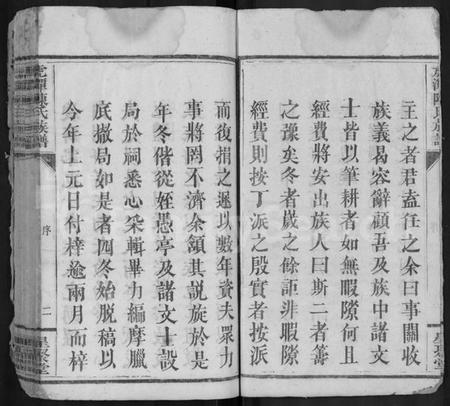 主之者君盍任之余曰事關收
族義曷容辭顧吾及族中諸文
士皆以筆耕者如無暇隙何且
經費將安出族人曰斯二者籌
之豫矣冬者歲之餘詎非暇隙
經費則按丁派之殷實者按派
而復捐之遲以數年資夫眾力
事將罔不濟余韙其説族於是
年冬偕從姪愚亭及諸文士設
局於祠悉心采輯畢力編摩臘
底撤局如是者四冬始脫稿以
今年上元日付梓逾兩月而梓
陳氏族譜
序
二